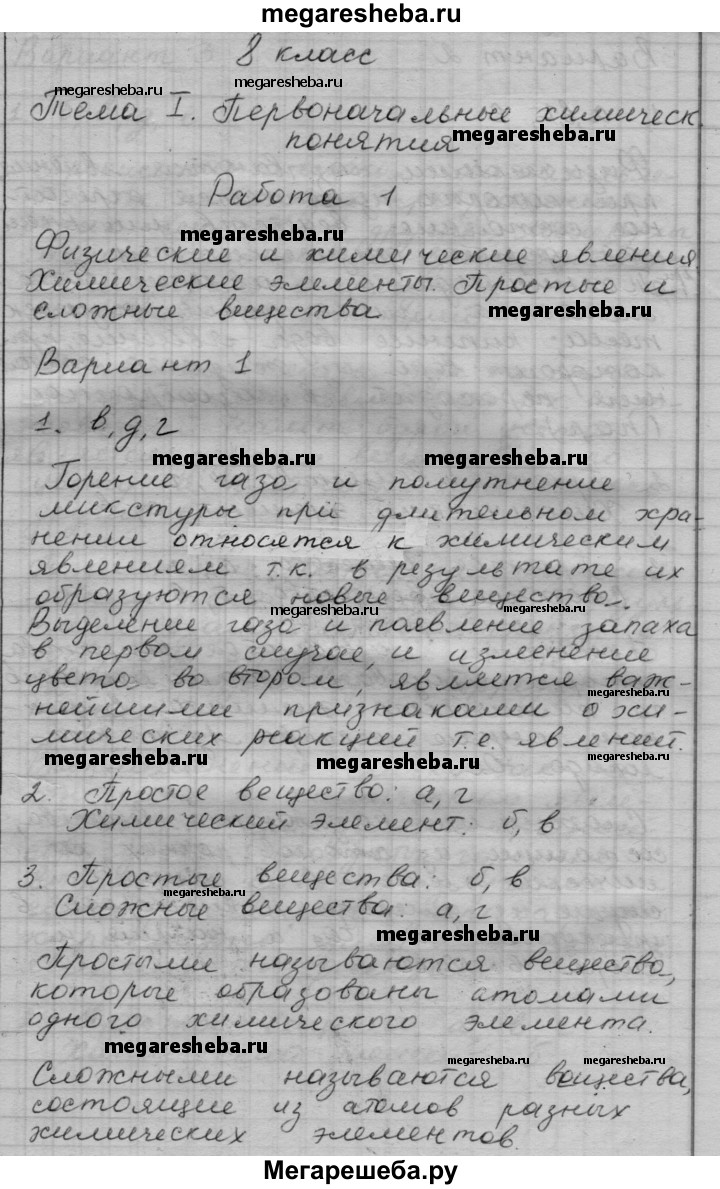 megaresheba.ru
8 класс
megaresheba.ru megaresheba.ru
Тема I. Первоначальные химическ.
понятия megaresheba.ru
Работа 1
megaresheba.ru
Физические и химические явления
Химические элементы. Простые и
сложные вещества megaresheba.ru
Вариант 1
1. в, д, г
megaresheba.ru megaresheba.ru
Горение газа и помутнение
микстуры при длительном хра-
нении относятся к химическим
явлениям т.к. в результате их
образуются новые вещества.
megaresheba.ru megaresheba.ru
Выделение газа и появление запаха
в первом случае, и изменение
цвета во втором, является важ-
megaresheba.ru
нейшими признаками о хи-
мических реакций т.е. явлений.
megaresheba.ru megaresheba.ru megaresheba.ru
2. Простое вещество: а, г
Химический элемент: б, в
3. Простые вещества: б, в
megaresheba.ru
Сложные вещества: а, г
megaresheba.ru
Простыми называются вещества,
которые образованы атомами
одного химического элемента.
megaresheba.ru megaresheba.ru megaresheba.ru
Сложными называются вещества,
состоящие из атомов разных
химических элементов.
Мегарешеба.ру